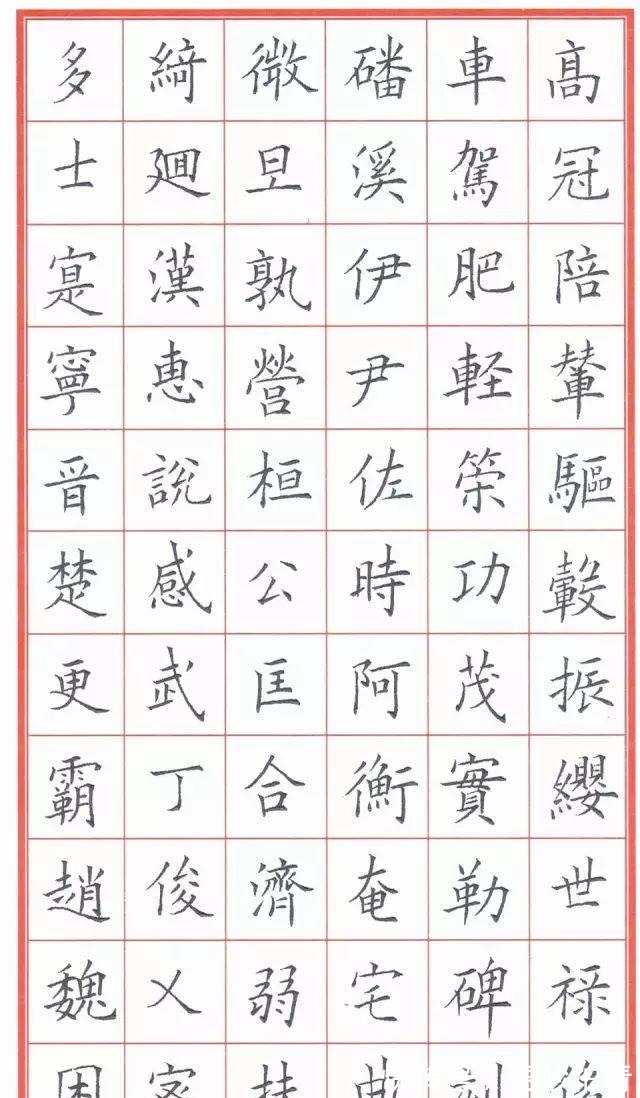 髙冠陪輦驅轂振纓世禄侈
車駕肥軽策功茂實勒碑刻
磻溪伊尹佐時阿衡奄宅曲
微旦孰營桓公匡合濟弱扶
綺廽漢惠說感武丁俊乂密
多士寔寧晋楚更霸趙魏困